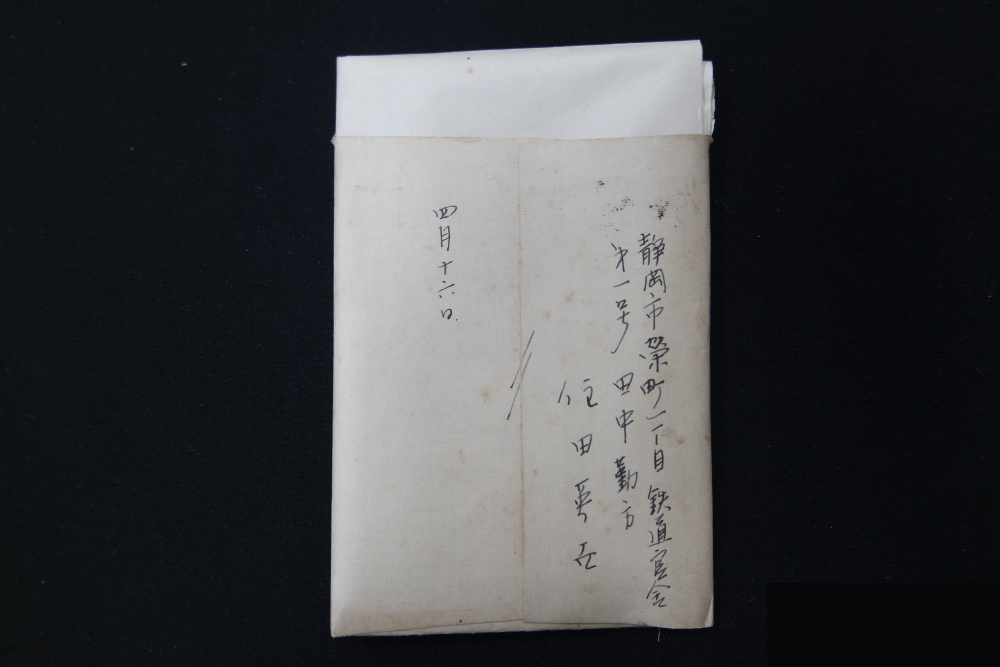 静岡市榮町一丁目鉄道官舎
第一号 田中勤方
住田英
四月十六日